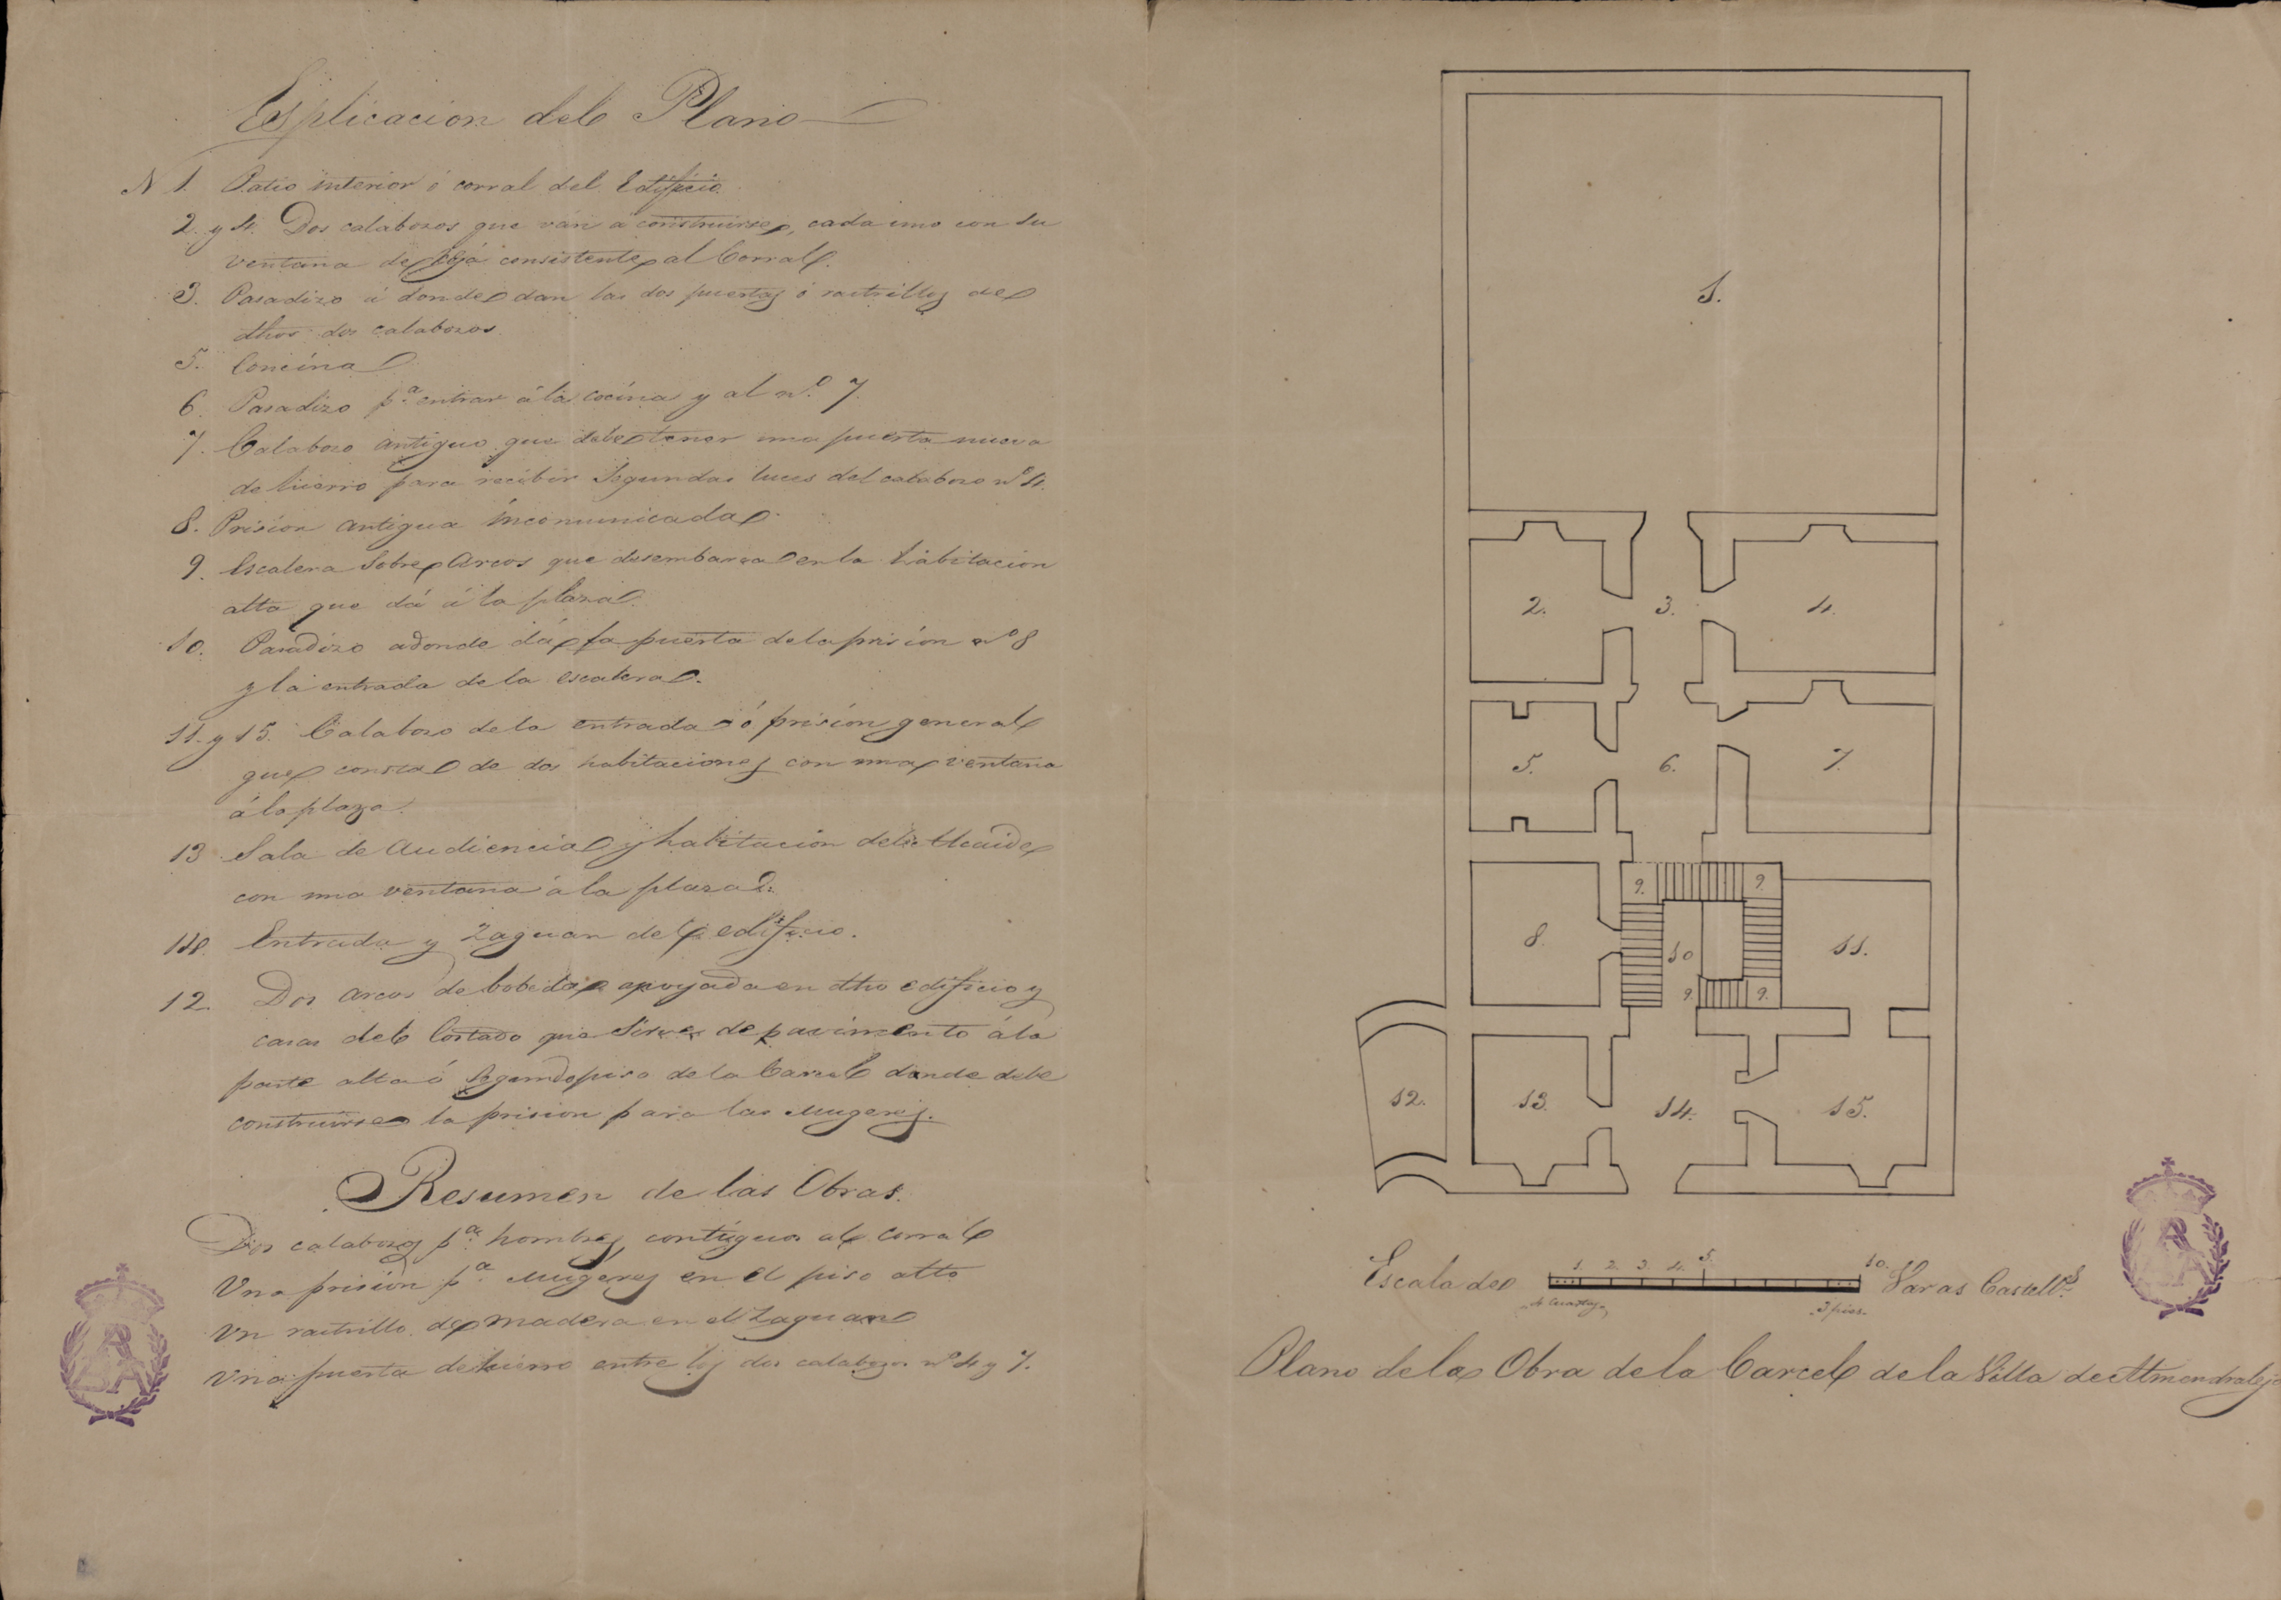 Esplicacion del Plano
N 1. Patio interior ó corral del Edificio.
2. y 4. Dos calabozos que ván á construirse, cada uno con su
ventana de rejá consistente al Corral.
3. Pasadizo á donde dan las dos puertas ó rastrillos de
dhos dos calabozos.
5. Concina
6. Pasadizo p.ª entrar á la cocina y al n.º 7.
7. Calabozo antiguo que debe tener una puerta nueva
de hierro para recibir Segundas luces del calabozo nº 4.
8. Prision antigua incomunicada.
9. Escalera Sobre Arcos que desembarca en la habitacion
alta que dá á la plaza.
10. Pasadizo adonde dá la puerta de la prision nº 8
y la entrada de la escalera.
11. y 15. Calabozo de la entrada ó prision general
que consta de dos habitaciones con una ventana
á la plaza.
13 Sala de Audiencia y habitacion del Alcaide
con una ventana á la plaza.
14. Entrada y Zaguan del edificio.
12. Dos arcos de bobeda apoyada en dho edificio y
casas del Costado que Sirve de pavimento á la
parte alta ó Segundo piso de la Carcel donde debe
construirse la prision para las Mugeres.
Resumen de las Obras.
Dos calabozos p.ª hombres, contiguos al corral
Una prision p.ª Mugeres en el piso alto
Un rastrillo de madera en el Zaguan
Una puerta de hierro entre los dos calabozos nº 4 y 7.
1.
2. 3. 4.
5. 6. 7.
9. 9.
8. 10 11.
9. 9.
12. 13. 14. 15.
1. 2. 3. 4. 5. 10.
Escala de Varas Castell.s
4 Cuartas 3 pies
Plano de la Obra de la Carcel de la Villa de Almendralejo